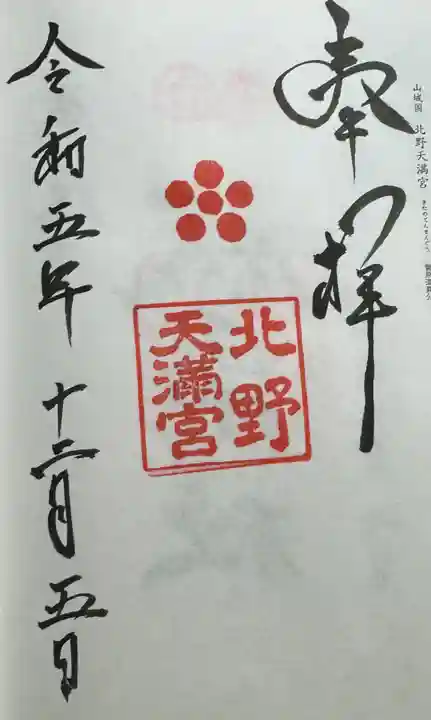 山城國 北野天満宮 きたのてんまんぐう 菅原道真公
奉拝
北野
天満宮
令和五年 十二月 五日